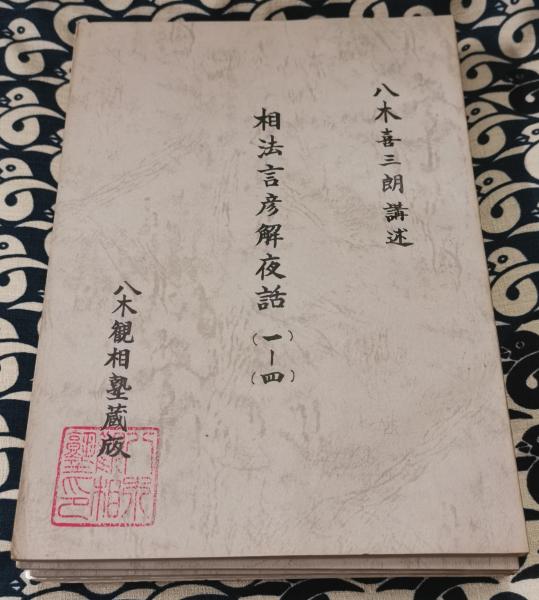 八木喜三朗講述
相法言彦解夜話(一-四)
八木観相塾蔵版
八木観相塾印